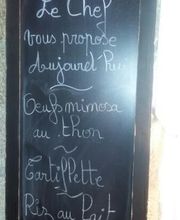 Le Chef
vous propose
Aujourd'hui
Oeufs mimosa
au thon
Tartiflette
Riz au lait